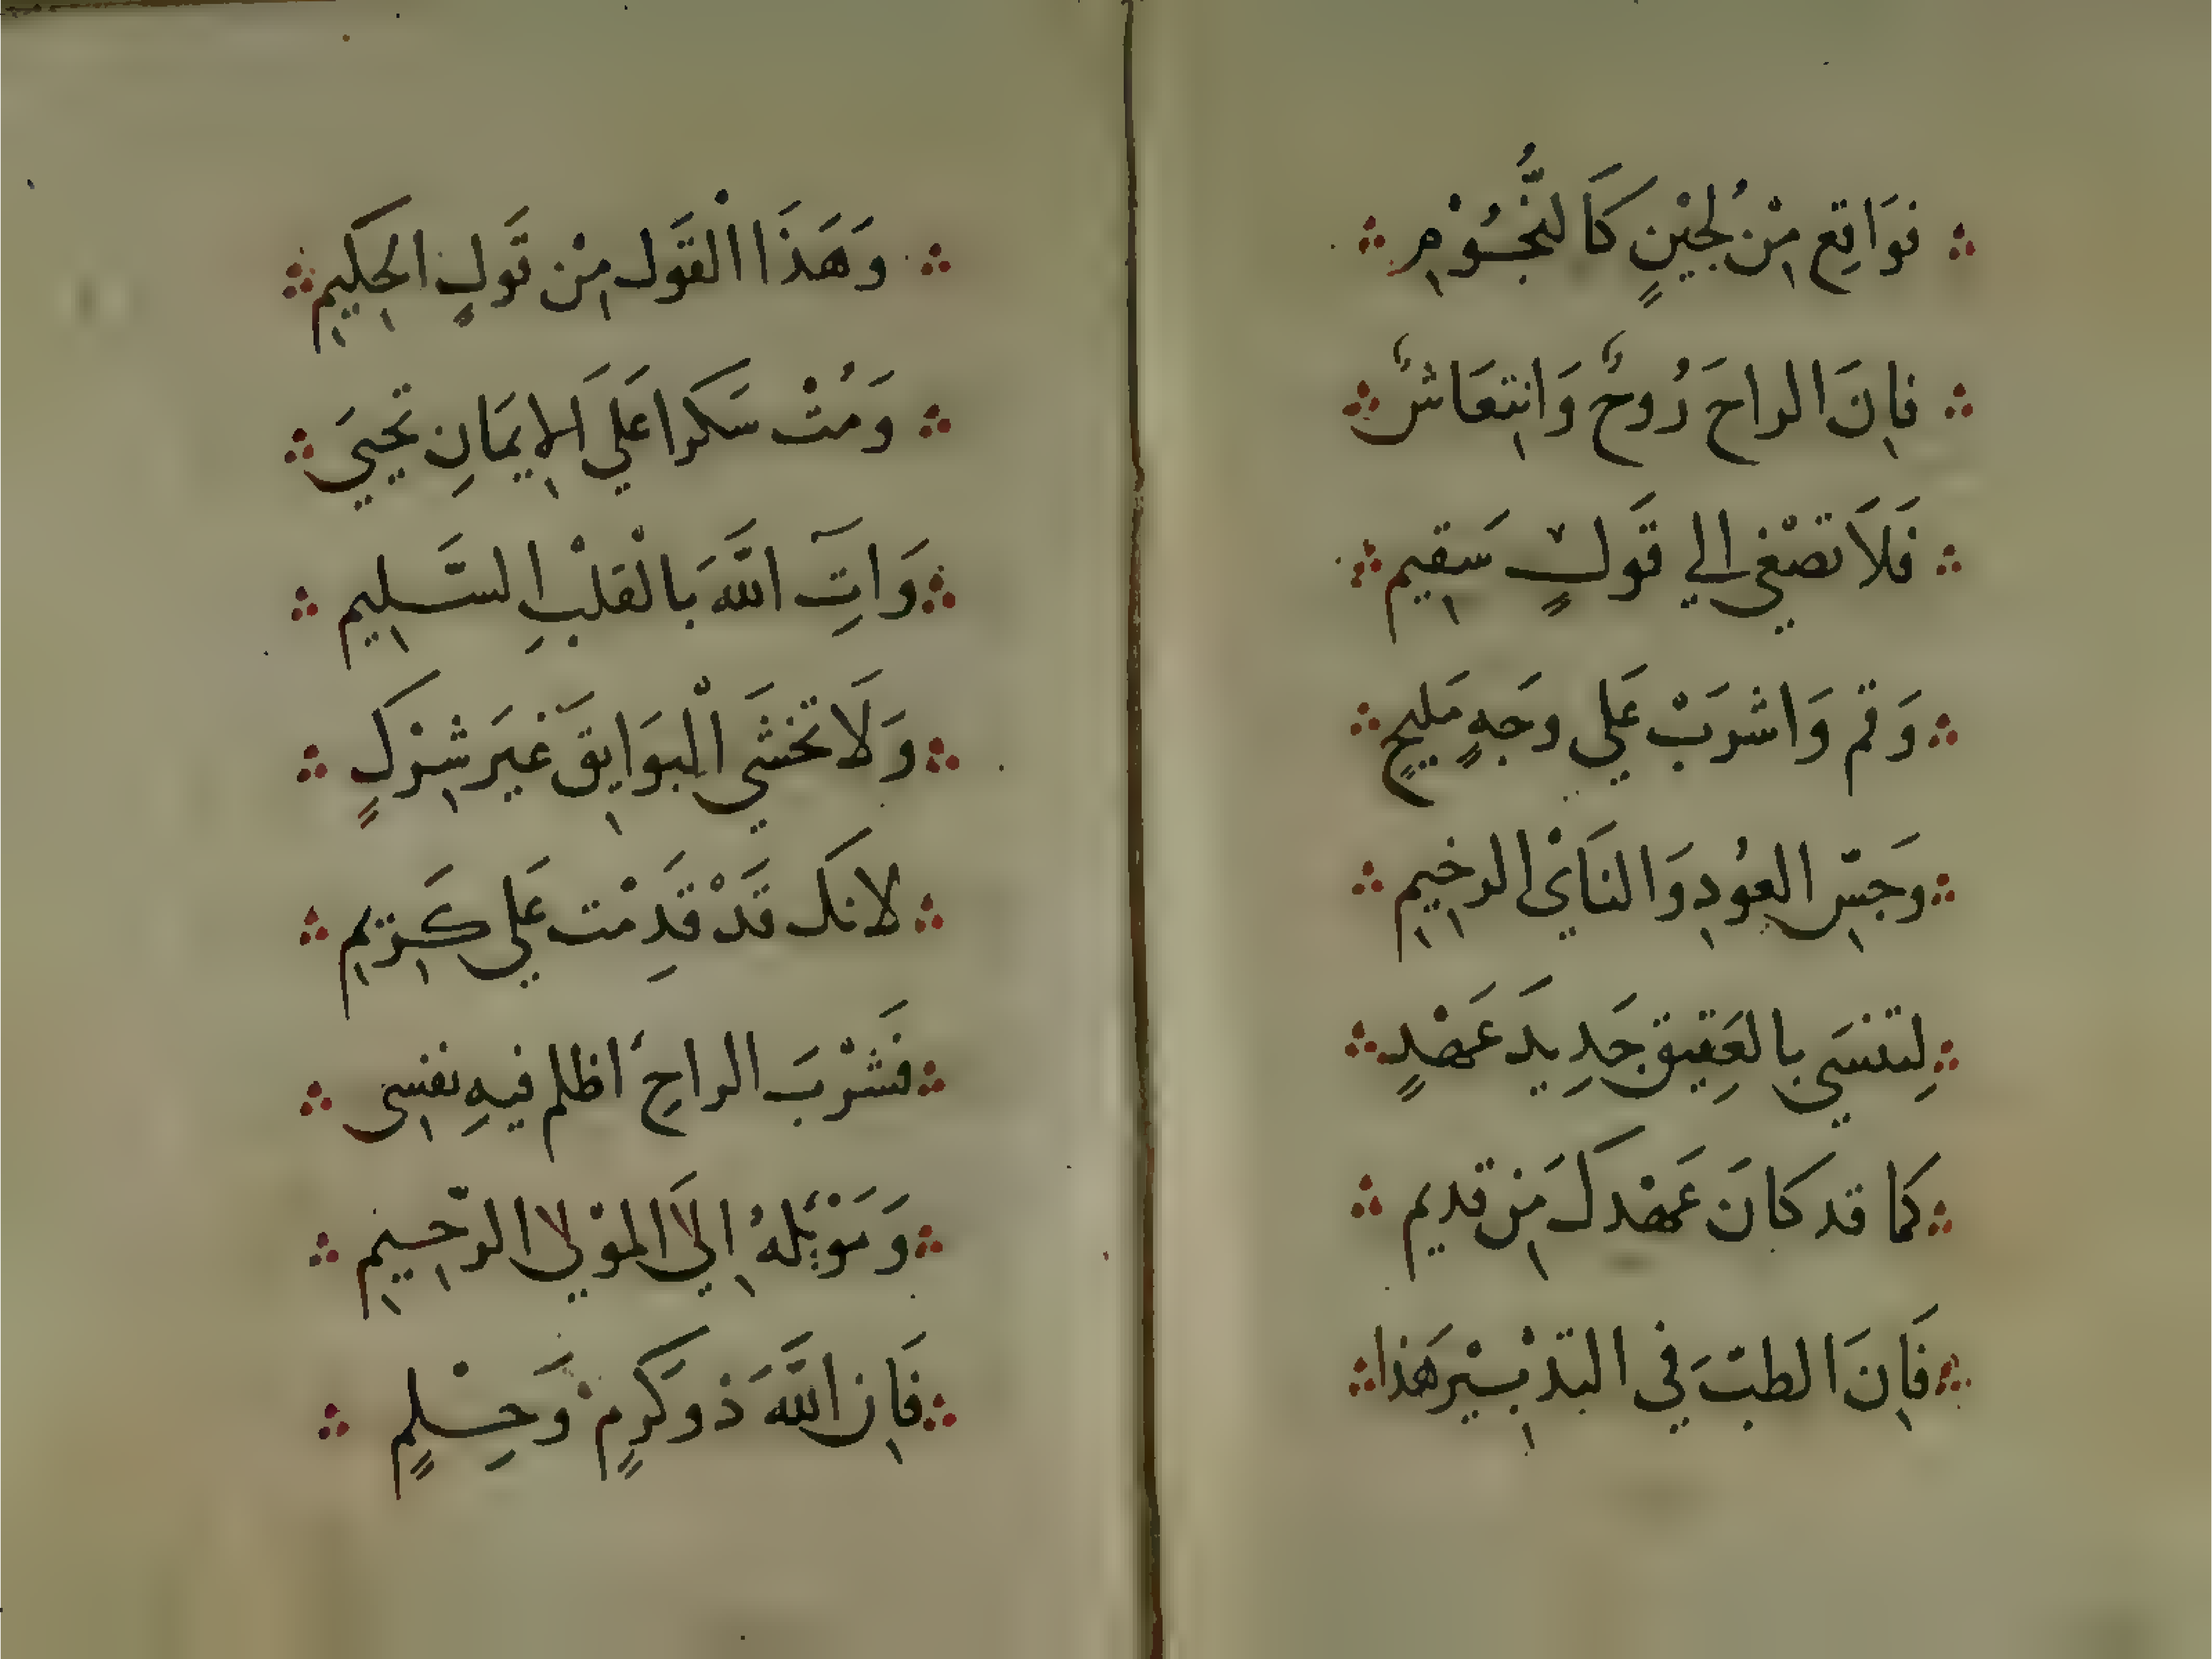 فوَاقِع مِنْ لُجَيْنٍ كَالنُّجُوْمِ
فاِنَ الراحَ رُوحٌ وَانتِعَاشٌ
فَلاَ تصْغي الي قَولٍ سَقيِم
وَقم وَاشرَبْ عَلي وجَهٍ مَليحٍ
وجَسِّ العُودِ وَالنَايْ الرخِيِم
لِتنسَي بالعَقِيق جَدِيدَ عَهْدٍ
كَما قد كَانَ عَهْدكَ مَِن قديم
فَاِنَ الطبَّ في التدْبِيْر هَذا
وَهَذَا الْقَول مِنْ قَولِ الحِكيِمِ
وَمُتْ سَكرا عَلي الاِيمَانِ تحيَي
وَآتِ اللَّهَ بَالْقَلْبِ السَّلِيم
وَلَا تَخشَي الْبوَايِقَ غيَر شِرْكٍ
لانكَ قَدْ قَدِمْت عَلي كَرِيِم
فَشُرْبَ الراحِ اظلم فيهِ نفسِي
وَمَوْئلهُ اِليَ المَوْلي الرّحِيِم
فَاِن اللَّهَ ذو كَرمٍ وَحِلْمٍ